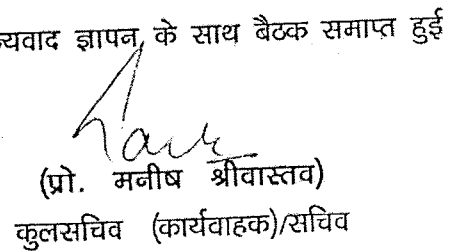 ज्ञापन के साथ बैठक समाप्त हुई
(प्रो. मनीष श्रीवास्तव)
कुलसचिव (कार्यवाहक)/सचिव